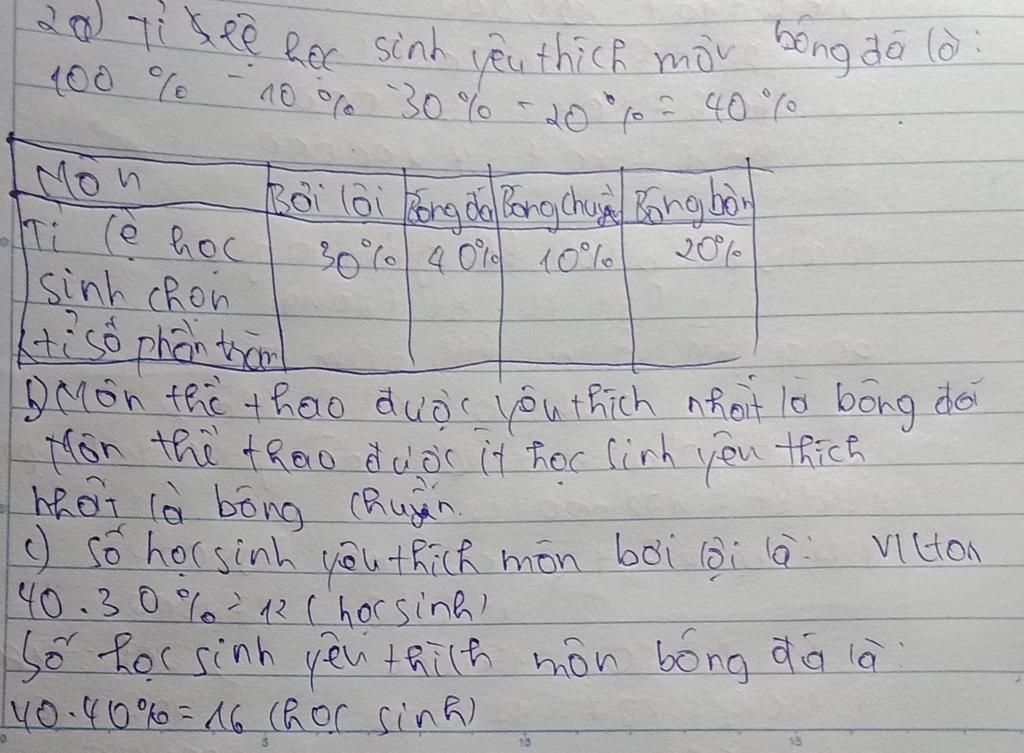 2a) Tỉ lệ học sinh yêu thích môn bóng đá là:
100 % - 10 % - 30 % - 20 % = 40 %
Môn Bơi lội Bóng đá Bóng chuyền Bóng bàn
Tỉ lệ học 30% 40% 10% 20%
sinh chọn
tỉ số phần trăm
b) Môn thể thao được yêu thích nhất là bóng đá
Môn thể thao được ít học sinh yêu thích
nhất là bóng chuyền.
c) Số học sinh yêu thích môn bơi lội là:
40 . 30 % = 12 (học sinh)
Số học sinh yêu thích môn bóng đá là:
40 . 40% = 16 (học sinh)